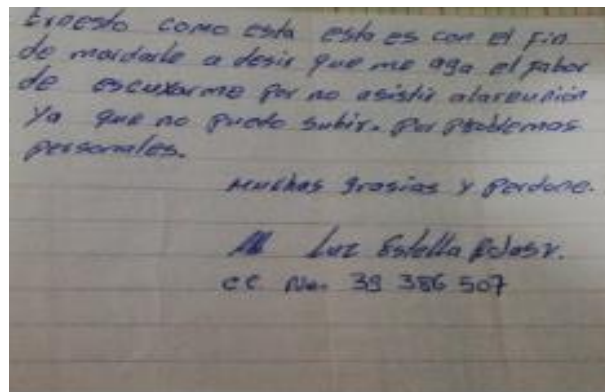 Ernesto como esta esto es con el fin
de mardarle a desir que me aga el fabor
de escuxarme por no asistir alareunion
Ya que no puedo subir. Por problemas
personales.
Muchas grasias y perdone.
Luz Estella
cc No. 39 386 507